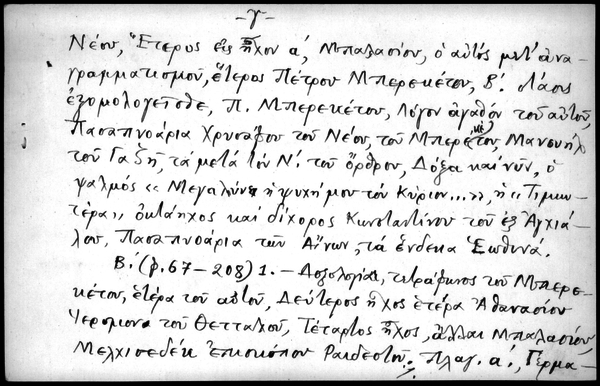 -γ-
Νέου, Ἕτερος εἰς ἦχον α΄, Μπαλασίου, ὁ αὐτός μετ' ἀνα-
γραμματισμοῦ, ἕτερος Πέτρου Μπερεκέτου, Β΄. Λάους
ἐξομολογεῖσθε, Π. Μπερεκέτου, Λόγον ἀγαθόν τοῦ αὐτοῦ,
Πασαπνοάρια Χρυσάφου τοῦ Νέου, τοῦ Μπερεκέτου, Μανουήλ
τοῦ Γαζῆ, τά μετά τόν Ν΄. τοῦ ὄρθρου, Δόξα καί νῦν, ὁ
ψαλμός «Μεγαλύνει ἡ ψυχή μου τόν Κύριον...», ἡ «Τιμιω-
τέρα», ὀκτάηχος καί δίχορος Κωνσταντίνου τοῦ ἐξ Ἀγχιά-
λου, Πασαπνοάρια τῶν Αἴνων, τά ἕνδεκα Ἑωθινά.
Β΄. (φ. 67 – 208) 1. – Δοξολογία, τετράφωνος τοῦ Μπερε-
κέτου, ἑτέρα τοῦ αὐτοῦ, Δεύτερος ἦχος ἑτέρα Ἀθανασίου
Ἱερομον. τοῦ Θετταλοῦ, Τέταρτος ἦχος, ἄλλαι Μπαλασίου,
Μελχισεδέκ Ἐπισκόπου Ραιδεστοῦ. Πλαγ. α΄., Γερμα-